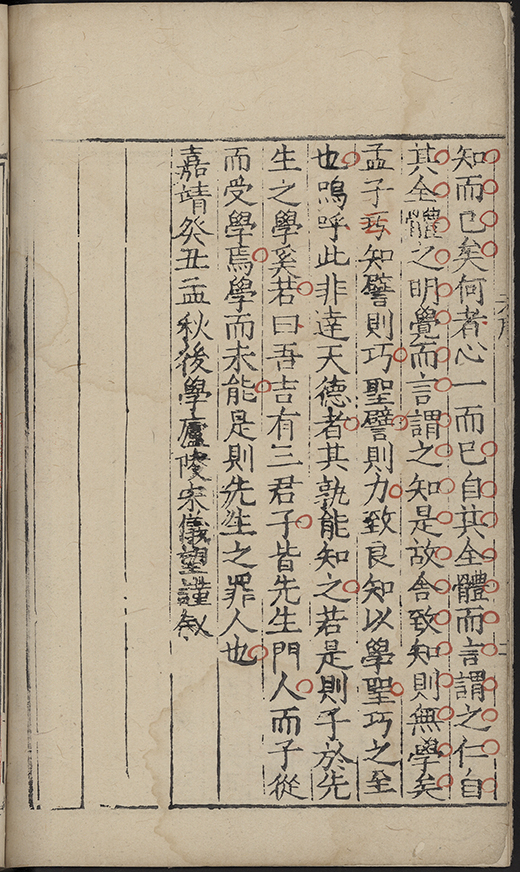 知而已矣何者心一而已自其全體而言謂之仁自
其全體之明覺而言謂之知是故舍致知則無學矣
孟子曰知譬則巧聖譬則力致良知以學聖巧之至
也嗚呼此非達天德者其孰能知之若是則子於先
生之學奚若曰吾吉有三君子皆先生門人而子從
而受學焉學而未能是則先生之罪人也
嘉靖癸丑孟秋後學廬陵宋儀望謹敘